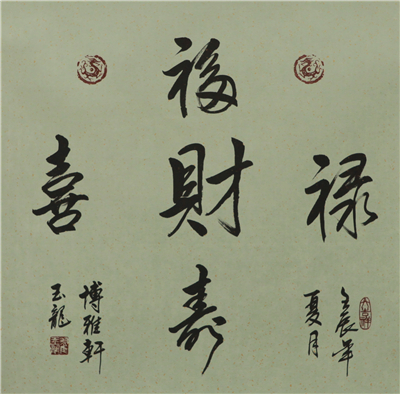 福
禄
財
喜
寿
壬辰年
夏月
博雅軒
玉龍